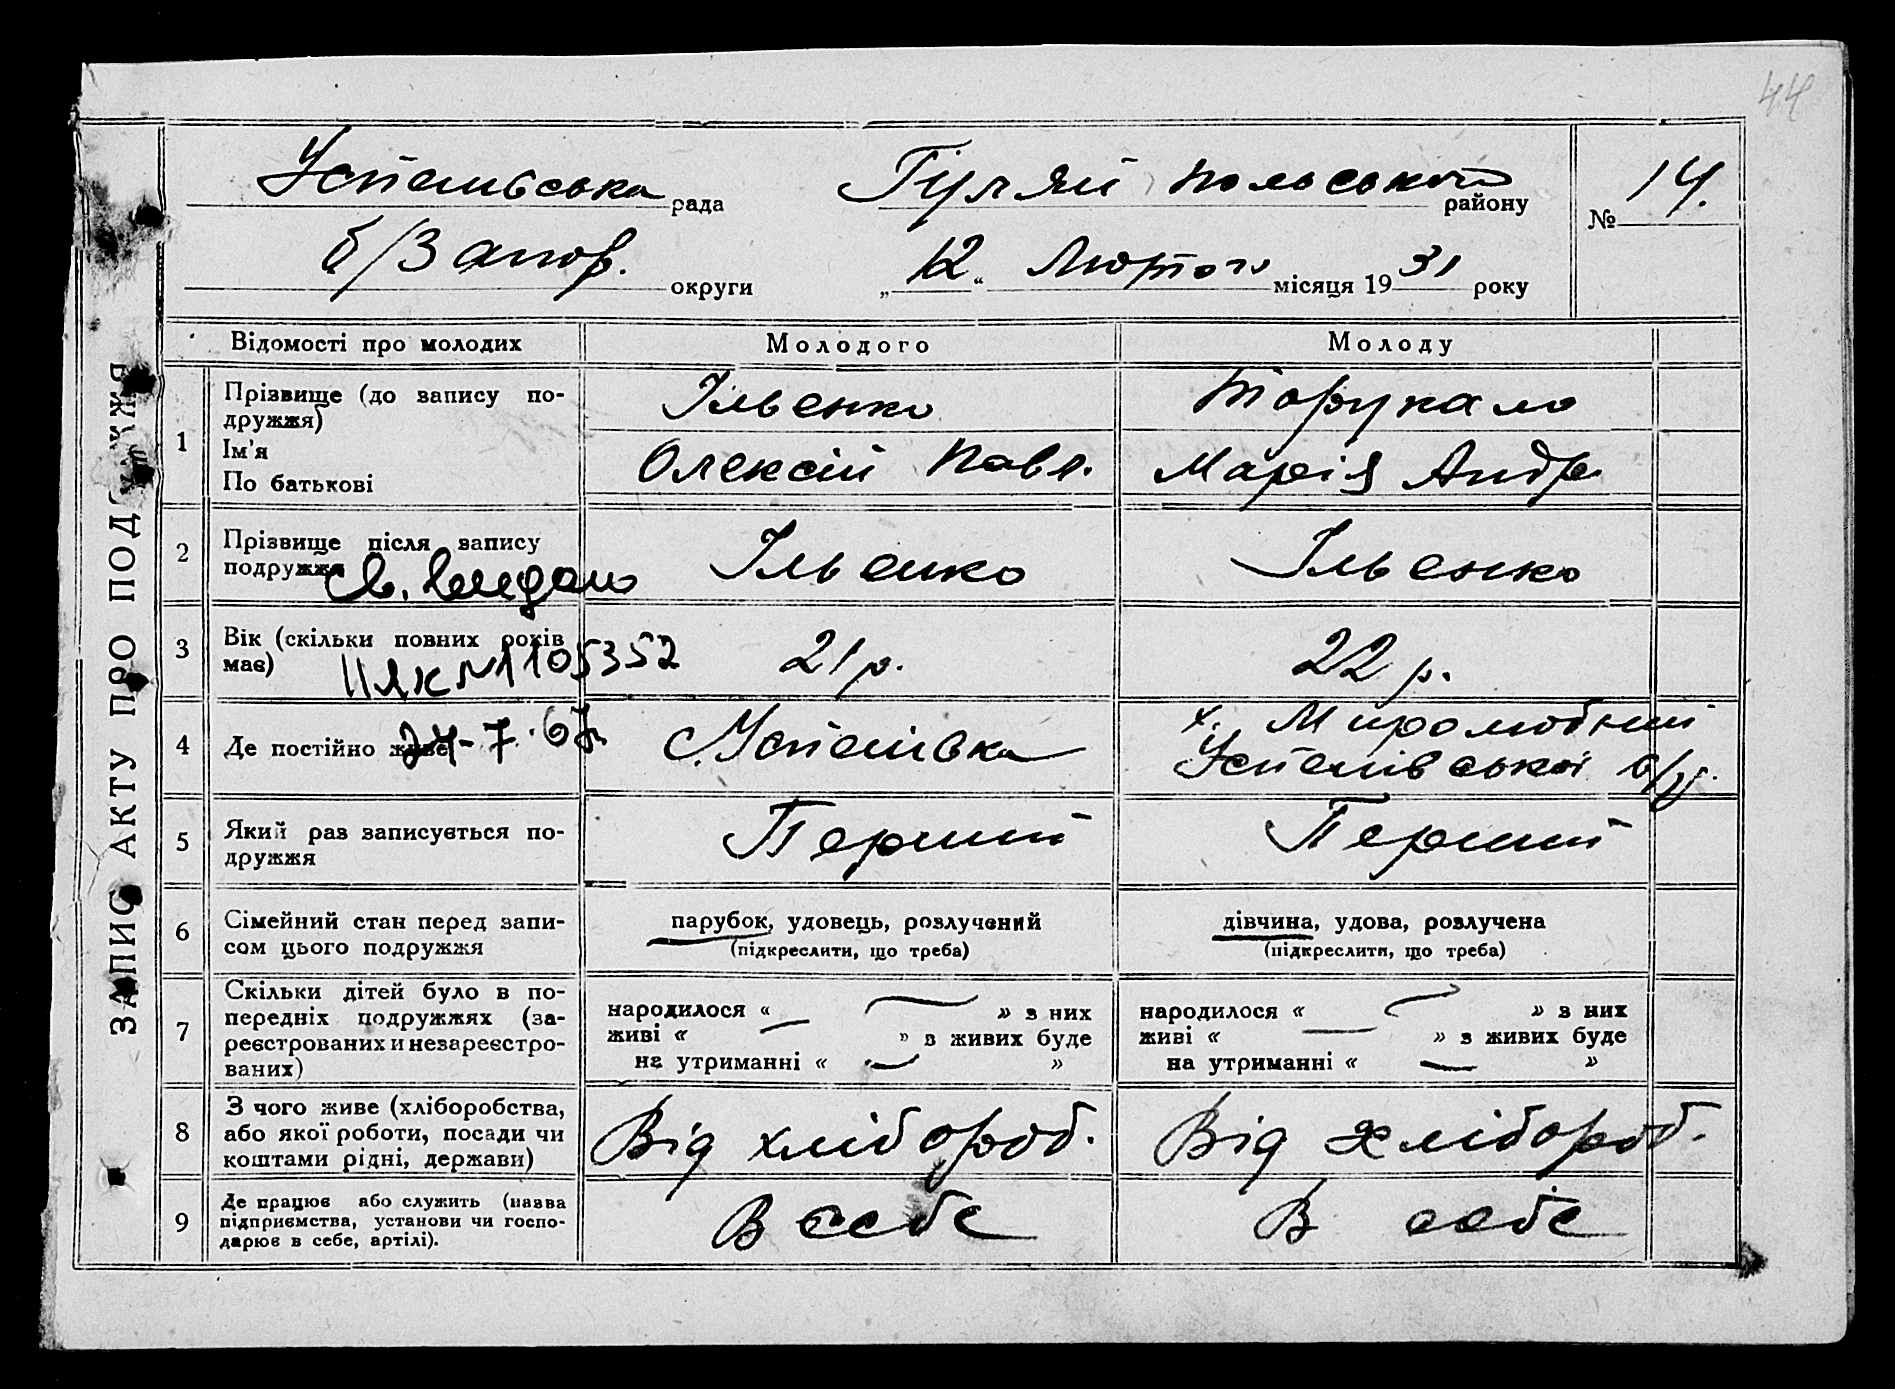 44
ЗАПИС АКТУ ПРО ПОДРУЖЖЯ
Успенівська рада
Гуляй польського району
№ 14.
б/Запор. округи
„12“ Лютого місяця 1931 року
Відомості про молодих
Молодого
Молоду
1
Прізвище (до запису по-
дружжя)
Ім'я
По батькові
Ільенко
Олексій Павл.
Марія Андр
2
Прізвище після запису
подружжя
Ільенко
Ільенко
3
Вік (скільки повних років
має)
21 р.
22 р.
Св. видано
ІІЯК №1105352
24-7.67
4
Де постійно живе
с. Успенівка
х. Миролюбний
Успенівської с/р.
5
Який раз записується по-
дружжя
Перший
Перший
6
Сімейний стан перед запи-
сом цього подружжя
парубок, удовець, розлучений
(підкреслити, що треба)
дівчина, удова, розлучена
(підкреслити, що треба)
7
Скільки дітей було в по-
передніх подружжях (за-
реєстрованих и незареєстро-
ваних)
народилося « — » з них
живі « — » з живих буде
на утриманні « — »
народилося « — » з них
живі « — » з живих буде
на утриманні « — »
8
З чого живе (хліборобства,
або якої роботи, посади чи
коштами рідні, держави)
Від хлібороб.
Від хлібороб.
9
Де працює або служить (назва
підприємства, установи чи госпо-
дарює в себе, артілі).
В себе
В себе